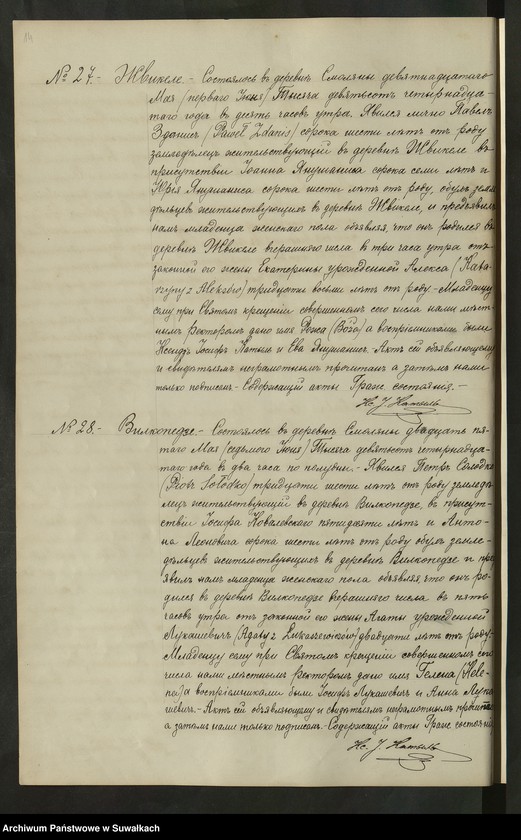 14
№ 27.- Жвикеле.- Состоялось въ деревнѣ Смоляны девятнадцатаго
Мая (перваго Іюня) Тысяча девятьсотъ четырнадца-
таго года въ десять часовъ утра. Явился лично Павелъ
Зданисъ (Paweł Zdanis) сорока шести лѣтъ отъ роду
земледѣлецъ жительствующій въ деревнѣ Жвикеле въ
присутствіи Іоанна Янушаниса сорока семи лѣтъ и
Юрія Янушаниса сорока шести лѣтъ отъ роду, обухъ земле
дѣльцевъ жительствующихъ въ деревнѣ Жвикеле, и предъявилъ
намъ младенца женскаго пола объявляя, что онъ родился въ
деревнѣ Жвикеле вчерашняго числа въ три часа утра отъ
законной его жены Екатерины урожденной Алекса (Kata-
rzyny z Aleksów) тридцати восьми лѣтъ отъ роду.- Младенцу
сему при Святомъ крещеніи совершенномъ сего числа нами мѣст-
нымъ Ректоромъ дано имя Рожа (Róża) а воспріемниками были
Ксендзъ Іосифъ и Ева Янушанисъ. Актъ сей объявляющему
и свидѣтелямъ неграмотнымъ прочитанъ а затѣмъ нами
только подписанъ.- Содержащій акты Гражд. состоянія.-
Кс. J.
№ 28.- Вилкопедзе.- Состоялось въ деревнѣ Смоляны двадцать пя-
таго Мая (седьмого Іюня) Тысяча девятьсотъ четырнадца-
таго года въ два часа по полудни.- Явился Петръ Солодко
(Piotr Sołodko) тридцати шести лѣтъ отъ роду земледѣ-
лецъ жительствующій въ деревнѣ Вилкопедзе, въ присут-
ствіи Іосифа Ковалевскаго пятидесяти лѣтъ и Анто-
на Леоновича сорока шести лѣтъ отъ роду обухъ земле-
дѣльцевъ жительствующихъ въ деревнѣ Вилкопедзе и предъ
явилъ намъ младенца женскаго пола объявляя, что онъ ро-
дился въ деревнѣ Вилкопедзе вчерашняго числа въ пять
часовъ утра отъ законной его жены Агаты урожденной
Лукашевичъ (Agaty z Łukaszewiczów) двадцати лѣтъ отъ роду.
Младенцу сему при Святомъ крещеніи совершенномъ сего
числа нами мѣстнымъ Ректоромъ дано имя Гелена (Hele-
na) а воспріемниками были Іосифъ Лукашевичъ и Анна Лука
шевичъ.- Актъ сей объявляющему и свидѣтелямъ неграмотнымъ прочитанъ
а затѣмъ нами только подписанъ.- Содержащій акты Гражд. состоянія
Кс. J.
Archiwum Państwowe w Suwałkach